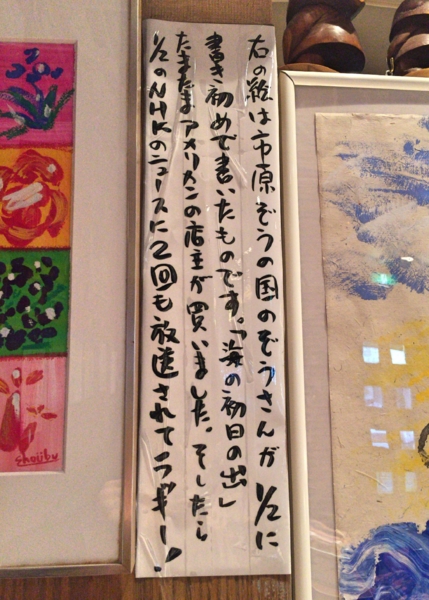 右の絵は市原ぞうの国のぞうさんが 1/2に
書き初めで書いたものです。「海の初日の出」
たまたまアメリカンの店主が買いました。そしたら
1/2のNHKのニュースに2回も放送されてラッキー!
Shojibu